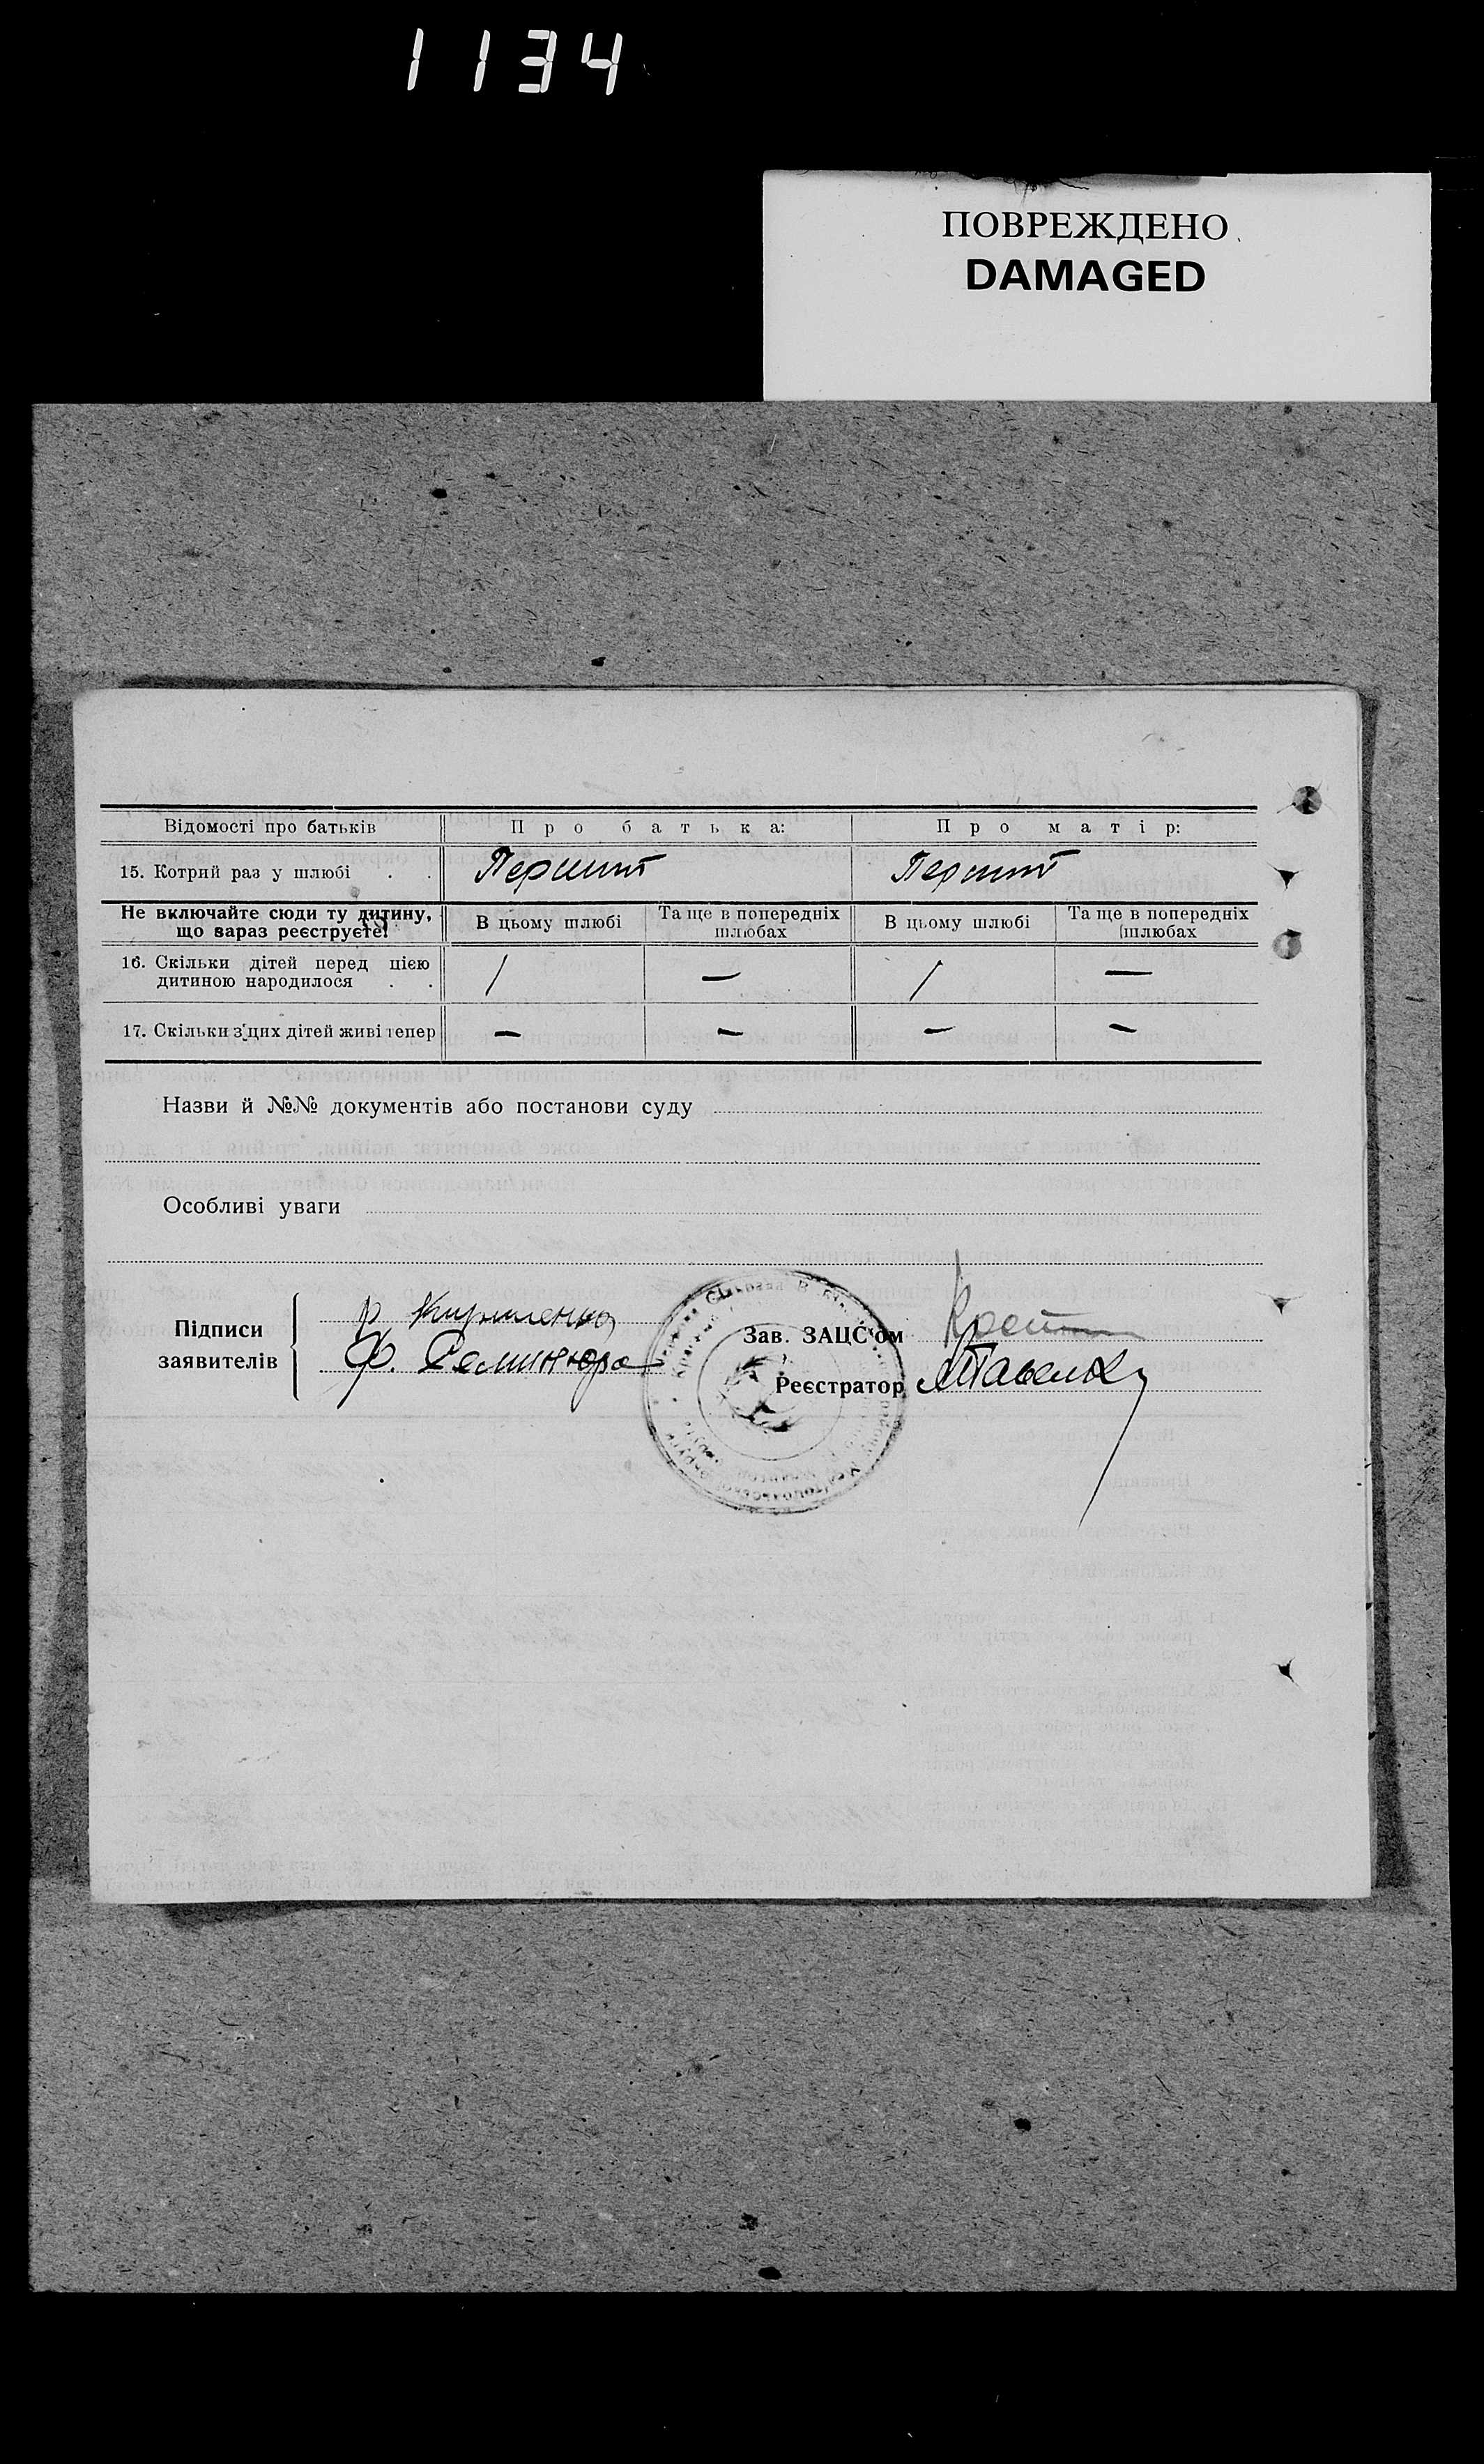 1134
ПОВРЕЖДЕНО
DAMAGED
Відомості про батьків Про батька: Про матір:
15. Котрий раз у шлюбі . . Перший Перший
Не включайте сюди ту дитину, що зараз реєструєте! В цьому шлюбі Та ще в попередніх шлюбах В цьому шлюбі Та ще в попередніх шлюбах
16. Скільки дітей перед цією дитиною народилося . . 1 — 1 —
17. Скільки з'цих дітей живі тепер — — — —
Назви й №№ документів або постанови суду
Особливі уваги
Підписи заявителів
Ф.
Зав. ЗАЦС'ом
Реєстратор